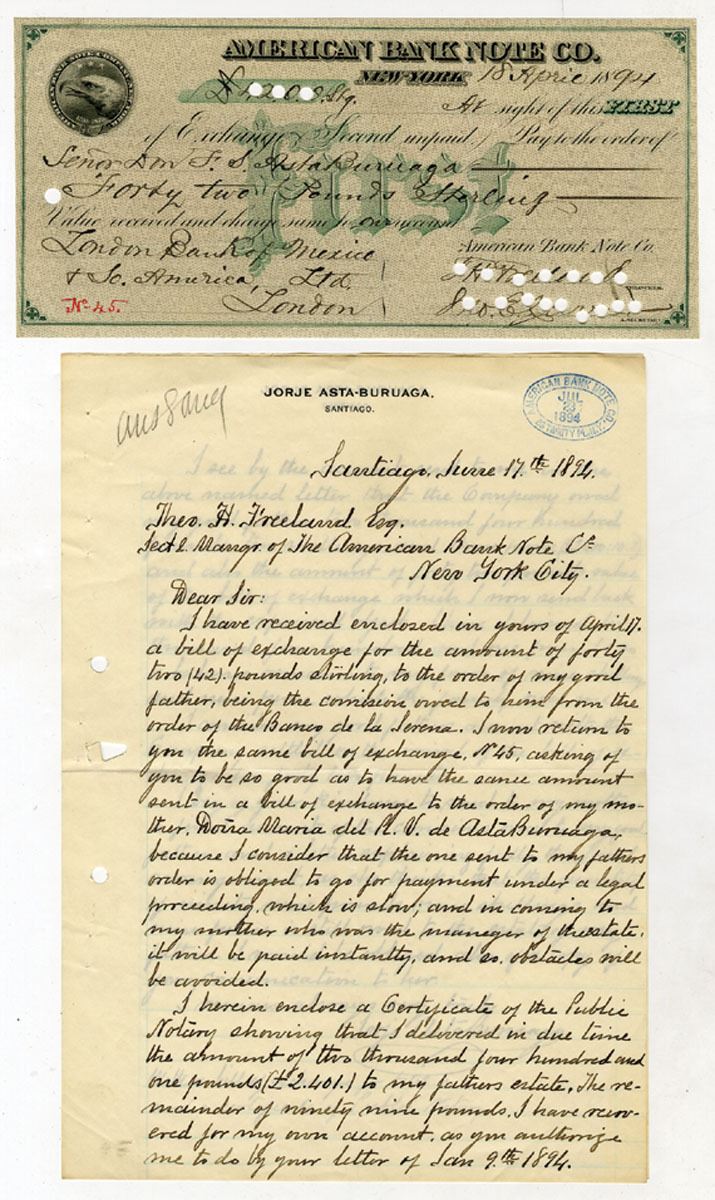 AMERICAN BANK NOTE CO.
NEW-YORK 18 April 1894
£42.0.0 Stg. At sight of this FIRST
of Exchange (Second unpaid) Pay to the order of
Señor Don F. S. AstaBuruaga
Forty two Pounds Sterling
Value received and charge same to our account
London Bank of Mexico American Bank Note Co.
& So. America, Ltd.
London
No. 45.
JORJE ASTA-BURUAGA.
SANTIAGO.
AMERICAN BANK NOTE CO.
JUL
1894
Santiago, June 17.th 1894.
Theo. H. Freeland Esq.
Sect. & Mangr. of The American Bank Note Co.
New York City.
Dear Sir:
I have received enclosed in yours of April 17.
a bill of exchange for the amount of forty
two (42). pounds stirling, to the order of my good
father, being the comision owed to him from the
order of the Banco de la Serena. I now return to
you the same bill of exchange, No 45, asking of
you to be so good as to have the same amount
sent in a bill of exchange to the order of my mo-
ther, Doña Maria del R. V. de AstaBuruaga,
because I consider that the one sent to my fathers
order is obliged to go for payment under a legal
prrceeding, which is slow; and in coming to
my mother who was the manager of the estate,
it will be paid instantly, and so, obstacles will
be avoided.
I herein enclose a Certificate of the Public
Notary showing that I delivered in due time
the amount of two thousand four hundred and
one pounds (£2.401.) to my fathers estate. The re-
mainder of ninety nine pounds, I have recov-
ered for my own account, as you authorize
me to do by your letter of Jan 9.th 1894.